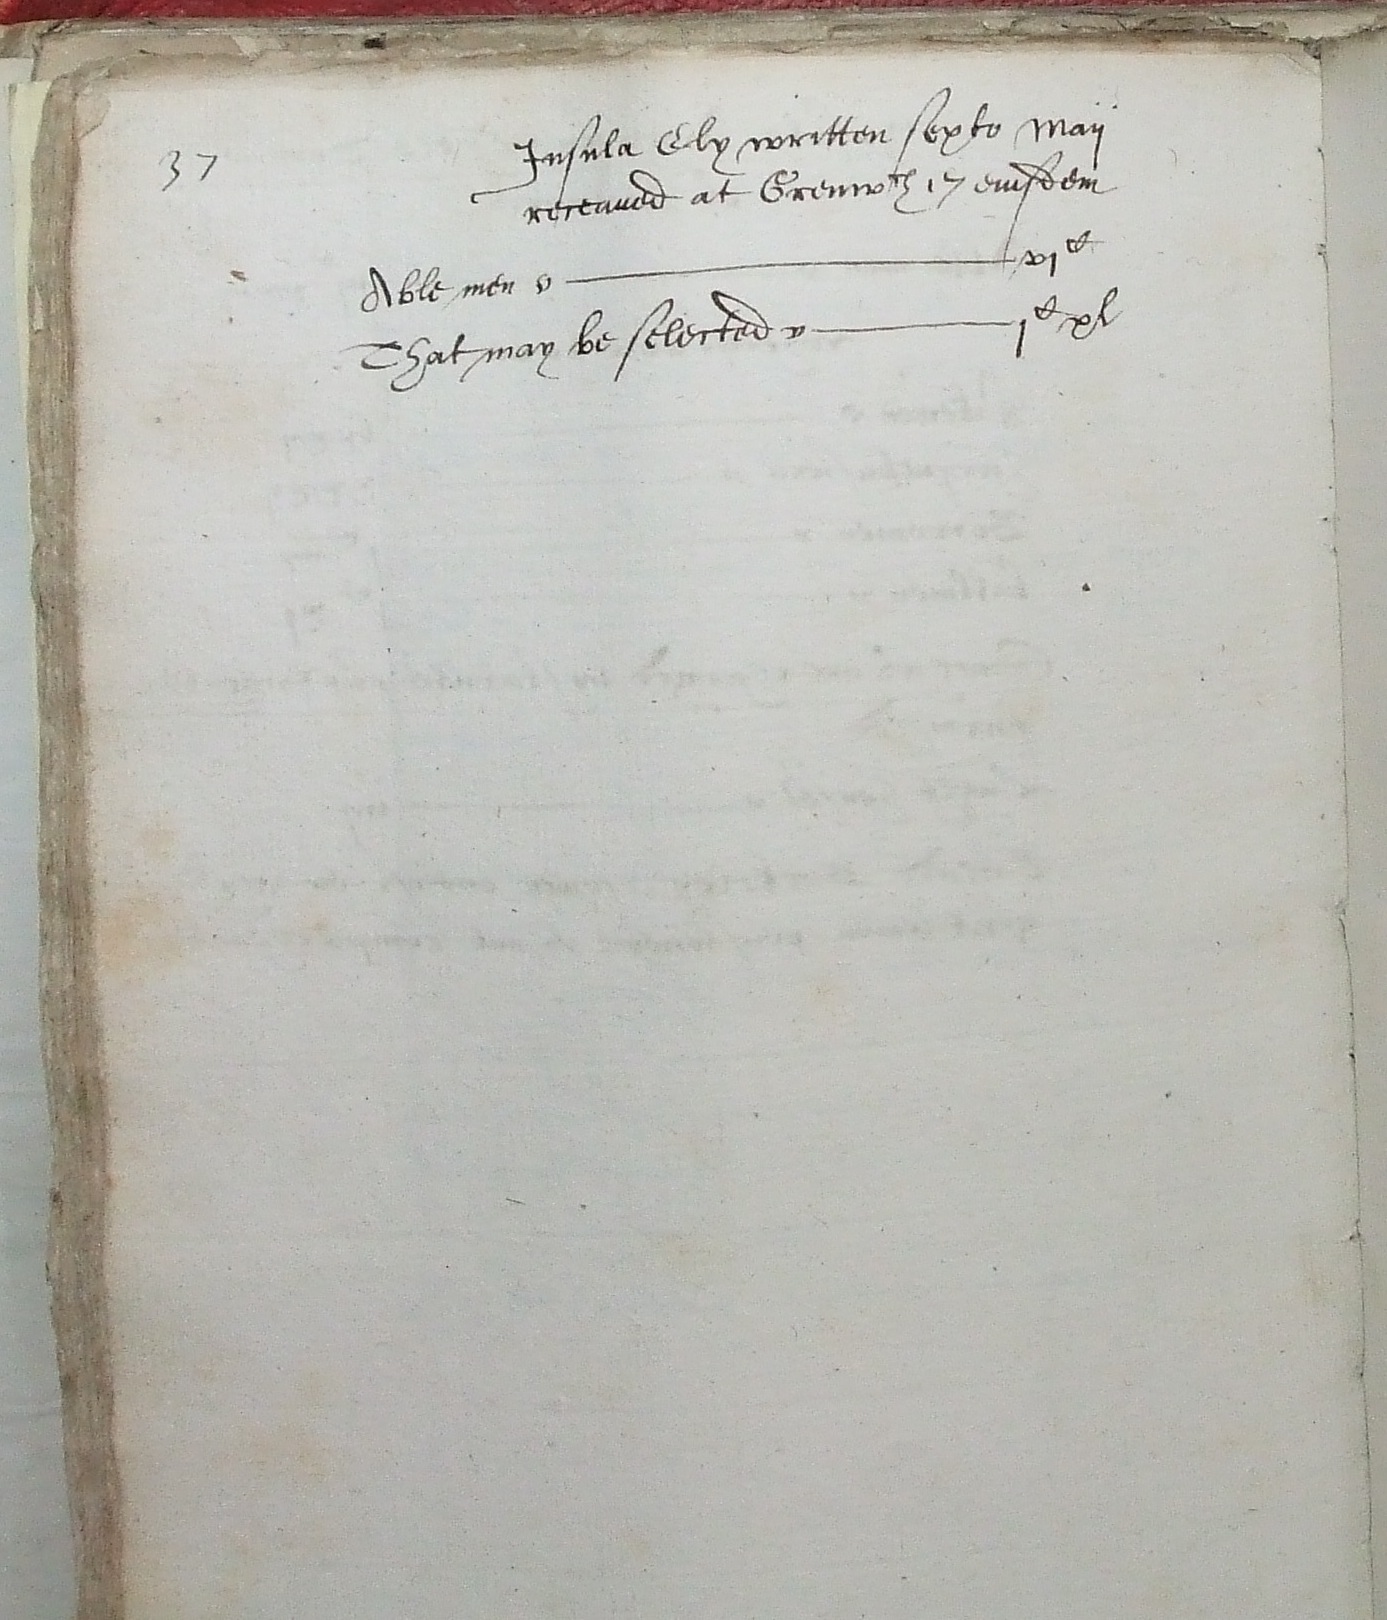 37
Insula Ely written sexto Maij
receaued at Grenwch 17 eiusdem
Able men v — vjC
That may be selected v — jC xl